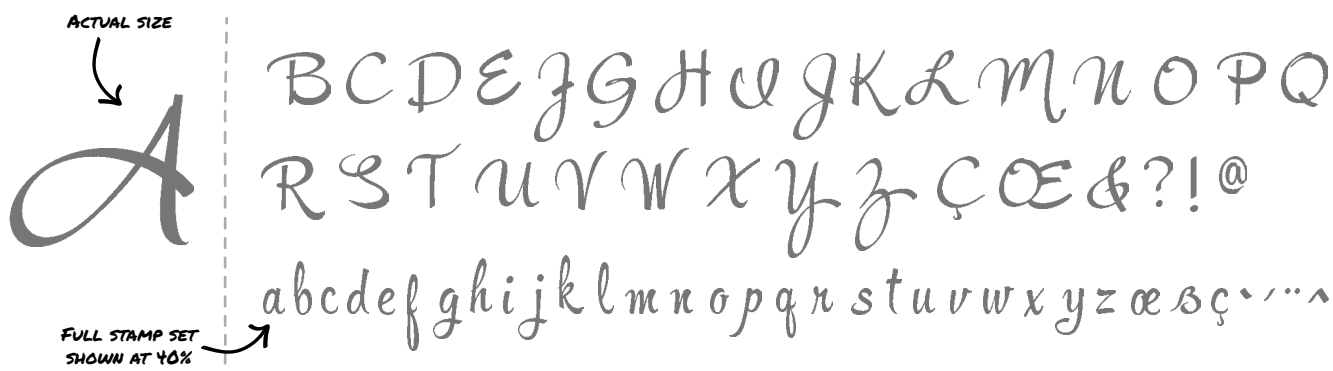 ACTUAL SIZE
A
B C D E F G H I J K L M N O P Q
R S T U V W X Y Z Ç Œ & ? ! @
a b c d e f g h i j k l m n o p q r s t u v w x y z œ ß ç ` ´ ¨ ^
FULL STAMP SET
SHOWN AT 40%